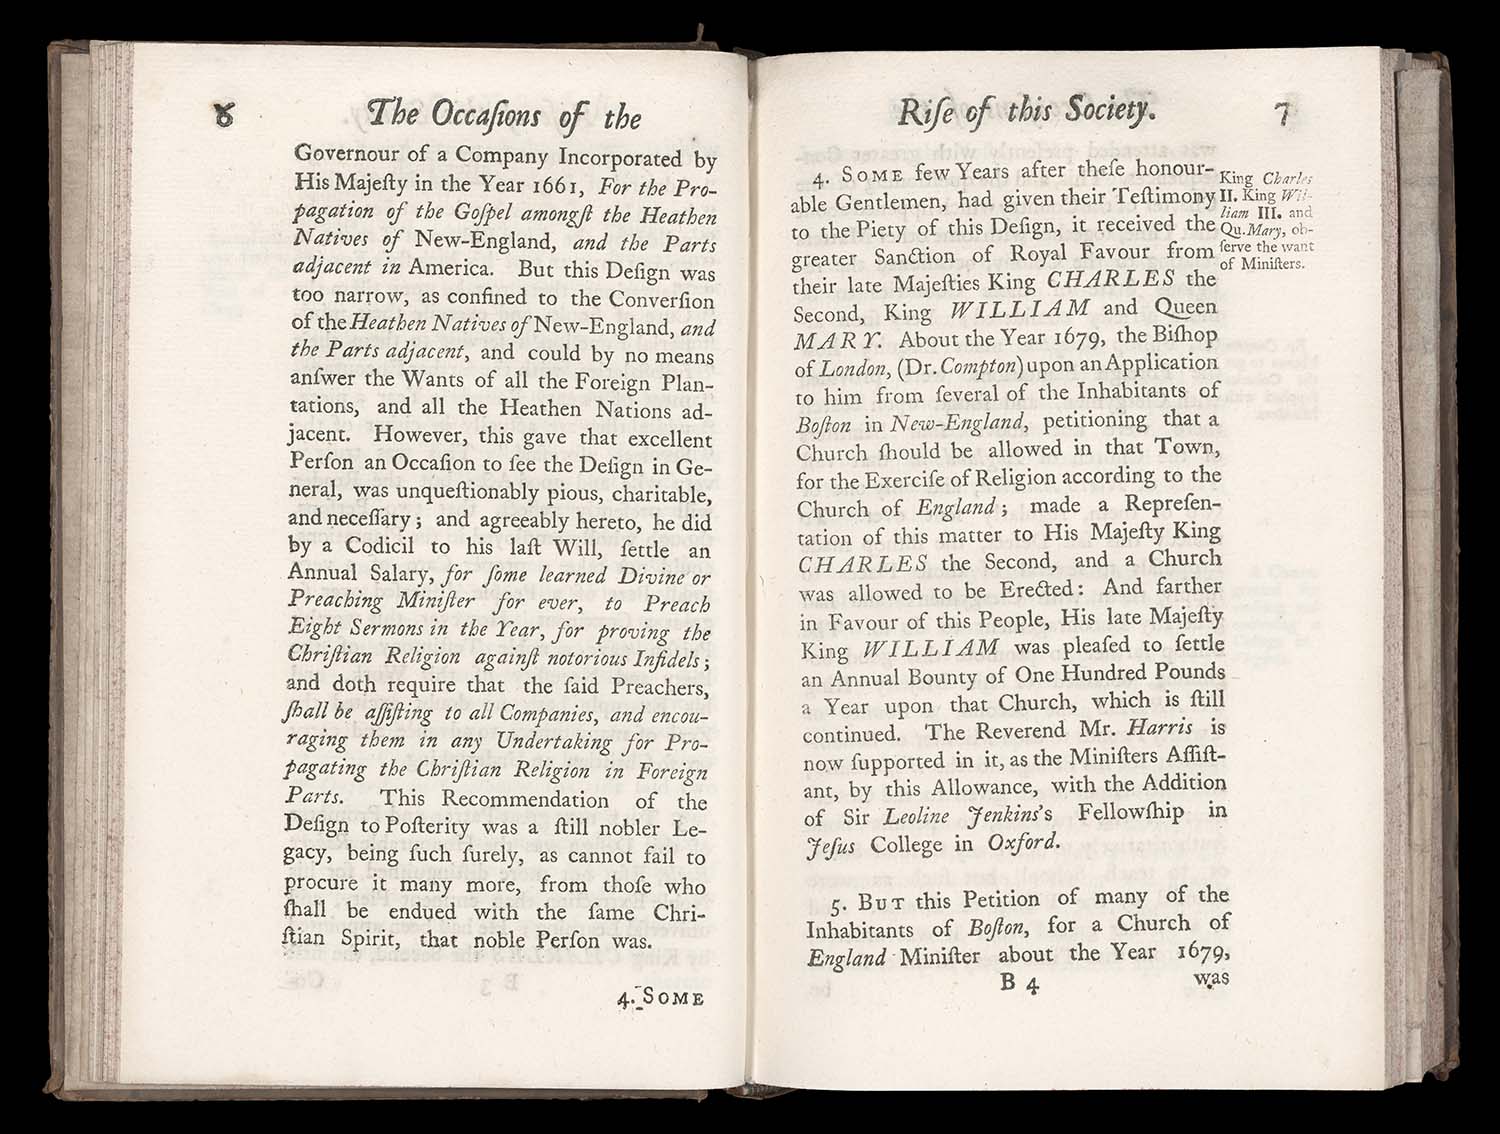 6 The Occaſions of the
Governour of a Company Incorporated by
His Majeſty in the Year 1661, For the Pro-
pagation of the Goſpel amongſt the Heathen
Natives of New-England, and the Parts
adjacent in America. But this Deſign was
too narrow, as confined to the Converſion
of the Heathen Natives of New-England, and
the Parts adjacent, and could by no means
anſwer the Wants of all the Foreign Plan-
tations, and all the Heathen Nations ad-
jacent. However, this gave that excellent
Perſon an Occaſion to ſee the Deſign in Ge-
neral, was unqueſtionably pious, charitable,
and neceſſary; and agreeably hereto, he did
by a Codicil to his laſt Will, ſettle an
Annual Salary, for ſome learned Divine or
Preaching Miniſter for ever, to Preach
Eight Sermons in the Year, for proving the
Chriſtian Religion againſt notorious Infidels;
and doth require that the ſaid Preachers,
ſhall be aſſiſting to all Companies, and encou-
raging them in any Undertaking for Pro-
pagating the Chriſtian Religion in Foreign
Parts. This Recommendation of the
Deſign to Poſterity was a ſtill nobler Le-
gacy, being ſuch ſurely, as cannot fail to
procure it many more, from thoſe who
ſhall be endued with the ſame Chri-
ſtian Spirit, that noble Perſon was.
4. SOME
Riſe of this Society. 7
4. SOME few Years after theſe honour-
able Gentlemen, had given their Teſtimony
to the Piety of this Deſign, it received the
greater Sanction of Royal Favour from
their late Majeſties King CHARLES the
Second, King WILLIAM and Queen
MARY. About the Year 1679, the Biſhop
of London, (Dr. Compton) upon an Application
to him from ſeveral of the Inhabitants of
Boſton in New-England, petitioning that a
Church ſhould be allowed in that Town,
for the Exerciſe of Religion according to the
Church of England; made a Repreſen-
tation of this matter to His Majeſty King
CHARLES the Second, and a Church
was allowed to be Erected: And farther
in Favour of this People, His late Majeſty
King WILLIAM was pleaſed to ſettle
an Annual Bounty of One Hundred Pounds
a Year upon that Church, which is ſtill
continued. The Reverend Mr. Harris is
now ſupported in it, as the Miniſters Aſſiſt-
ant, by this Allowance, with the Addition
of Sir Leoline Jenkins's Fellowſhip in
Jeſus College in Oxford.
King Charles
II. King Wil-
liam III. and
Qu. Mary, ob-
ſerve the want
of Miniſters.
5. BUT this Petition of many of the
Inhabitants of Boſton, for a Church of
England Miniſter about the Year 1679,
B 4 was